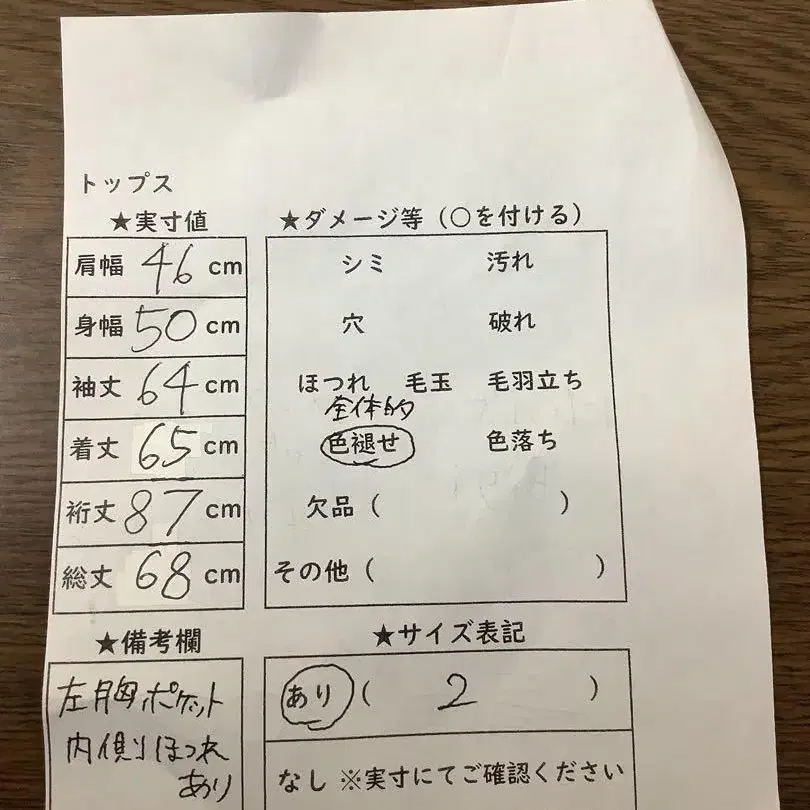 トップス
★実寸値
肩幅 46 cm
身幅 50 cm
袖丈 64 cm
着丈 65 cm
裄丈 87 cm
総丈 68 cm
★ダメージ等（○を付ける）
シミ 汚れ
穴 破れ
ほつれ 毛玉 毛羽立ち
全体的
色褪せ 色落ち
欠品（ ）
その他（ ）
★備考欄
左胸ポケット
内側ほつれ
あり
★サイズ表記
あり（ 2 ）
なし ※実寸にてご確認ください